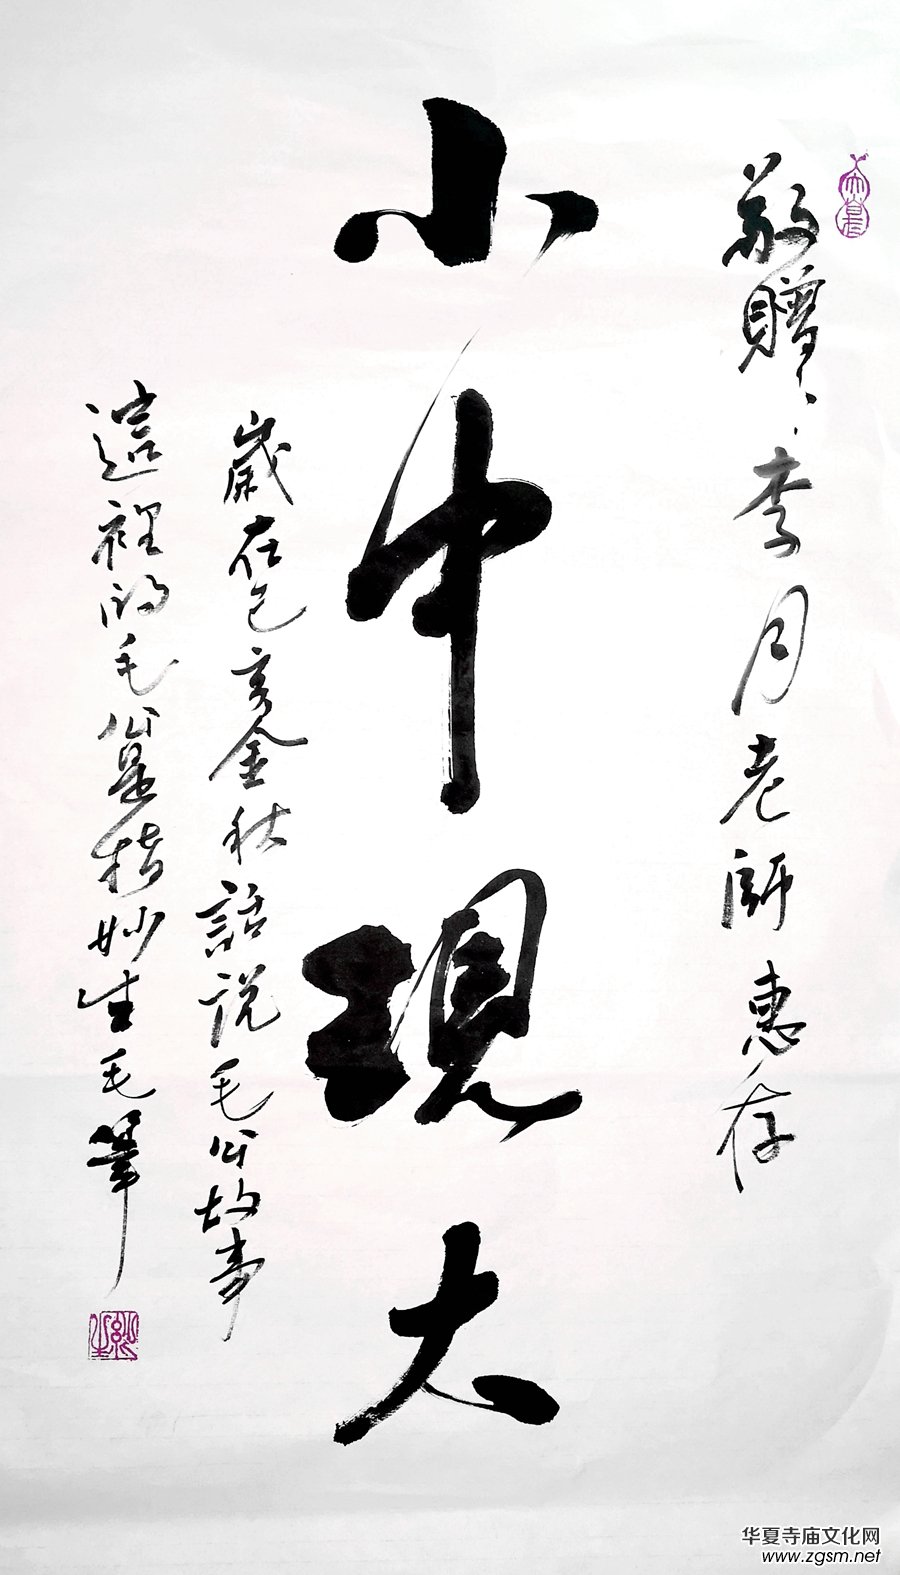 敬贈李月老師惠存
小中現大
歲在己亥金秋話說毛公故事
這裡的毛公是指妙生毛筆
华夏寺庙文化网
www.zgsm.net